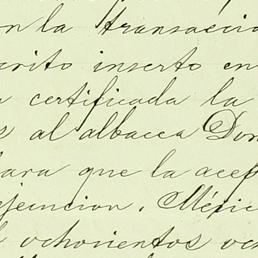 on la transaccio
crito inserto en
certificada la
s al albacea Don
para que la acep
ejecucion. Mexic
ochocientos och